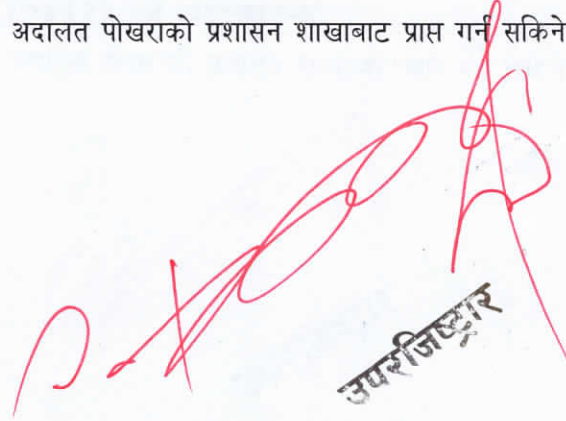 अदालत पोखराको प्रशासन शाखाबाट प्राप्त गर्न सकिने
उपरजिष्ट्रार